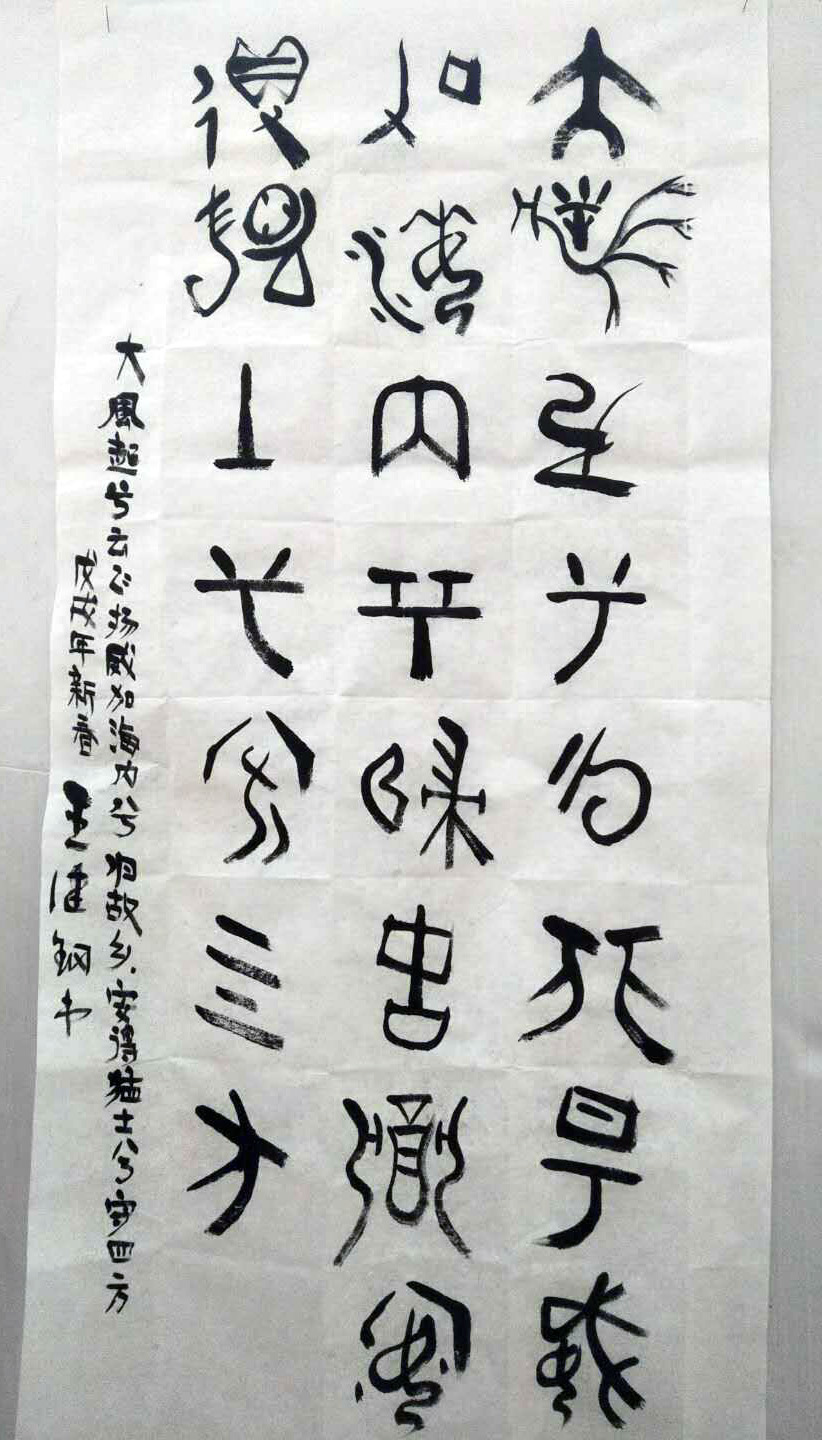 大风起兮云飞扬威
加海内兮归故乡安
得猛士兮守四方
大風起兮云飞扬威加海内兮归故乡安得猛士兮守四方
戊戌年新春